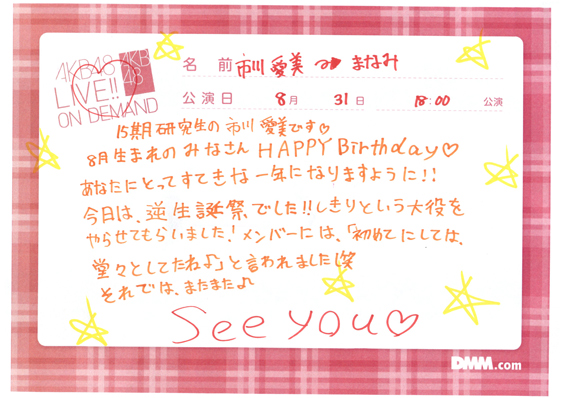 AKB48
LIVE!!
ON DEMAND
AKB
48
名 前 市川 愛美 まなみ
公演日 8月 31日 18:00 公演
15期研究生の市川愛美です♡
8月生まれのみなさん HAPPY Birthday♡
あなたにとってすてきな一年になりますように!!
今日は、逆生誕祭でした!!しきりという大役を
やらせてもらいました!メンバーには、「初めてにしては、
堂々としてたね♪」と言われました笑
それでは、またまた♪
See you♡
DMM.com